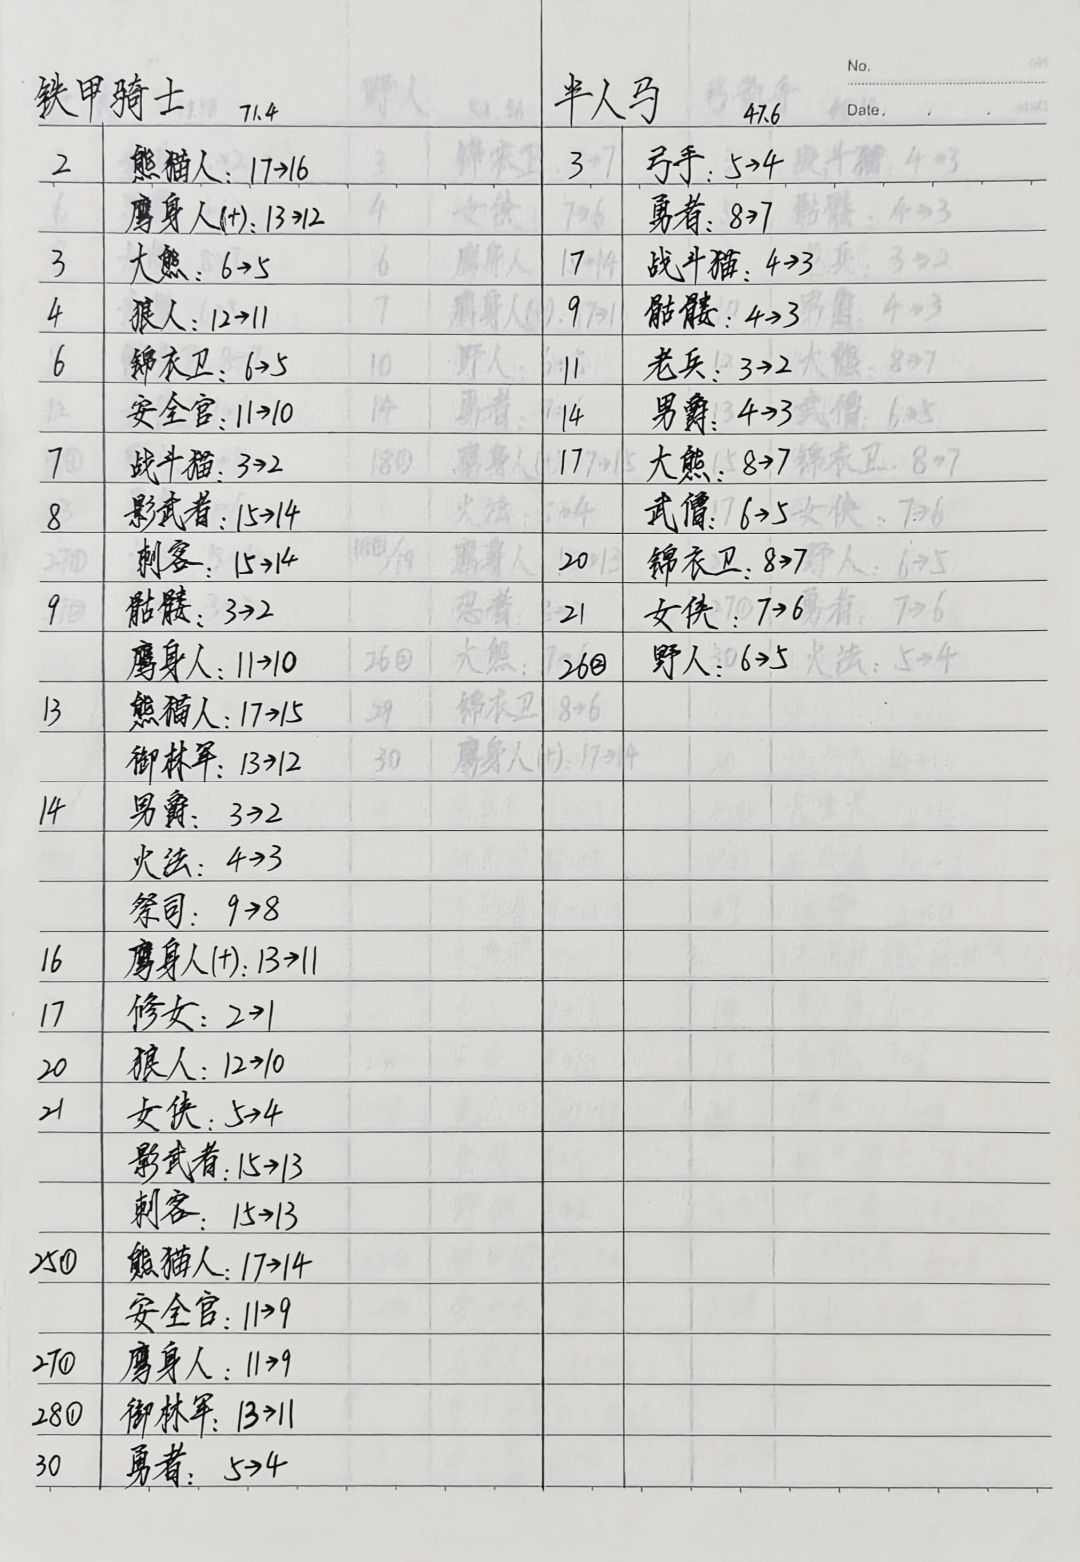 No.
Date.
铁甲骑士 71.4
2 熊猫人: 17→16
鹰身人(+): 13→12
3 大熊: 6→5
4 狼人: 12→11
6 锦衣卫: 6→5
安全官: 11→10
7 战斗猫: 3→2
8 影武者: 15→14
刺客: 15→14
9 骷髅: 3→2
鹰身人: 11→10
13 熊猫人: 17→15
御林军: 13→12
14 男爵: 3→2
火法: 4→3
祭司: 9→8
16 鹰身人(+): 13→11
17 修女: 2→1
20 狼人: 12→10
21 女侠: 5→4
影武者: 15→13
刺客: 15→13
25① 熊猫人: 17→14
安全官: 11→9
27① 鹰身人: 11→9
28① 御林军: 13→11
30 勇者: 5→4
半人马 47.6
3 弓手: 5→4
勇者: 8→7
7 战斗猫: 4→3
9 骷髅: 4→3
11 老兵: 3→2
14 男爵: 4→3
17 大熊: 8→7
武僧: 6→5
20 锦衣卫: 8→7
21 女侠: 7→6
26② 野人: 6→5